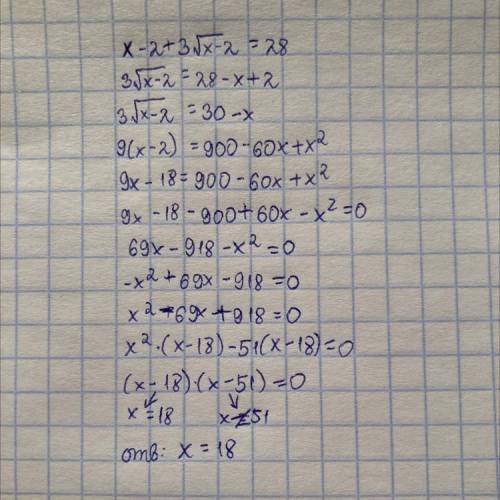 x - 2 + 3√x-2 = 28
3√x-2 = 28 - x + 2
3√x-2 = 30 - x
9(x-2) = 900 - 60x + x²
9x - 18 = 900 - 60x + x²
9x - 18 - 900 + 60x - x² = 0
69x - 918 - x² = 0
-x² + 69x - 918 = 0
x² - 69x + 918 = 0
x² · (x-18) - 51(x-18) = 0
(x-18) · (x-51) = 0
x = 18 x ≠ 51
отв: x = 18